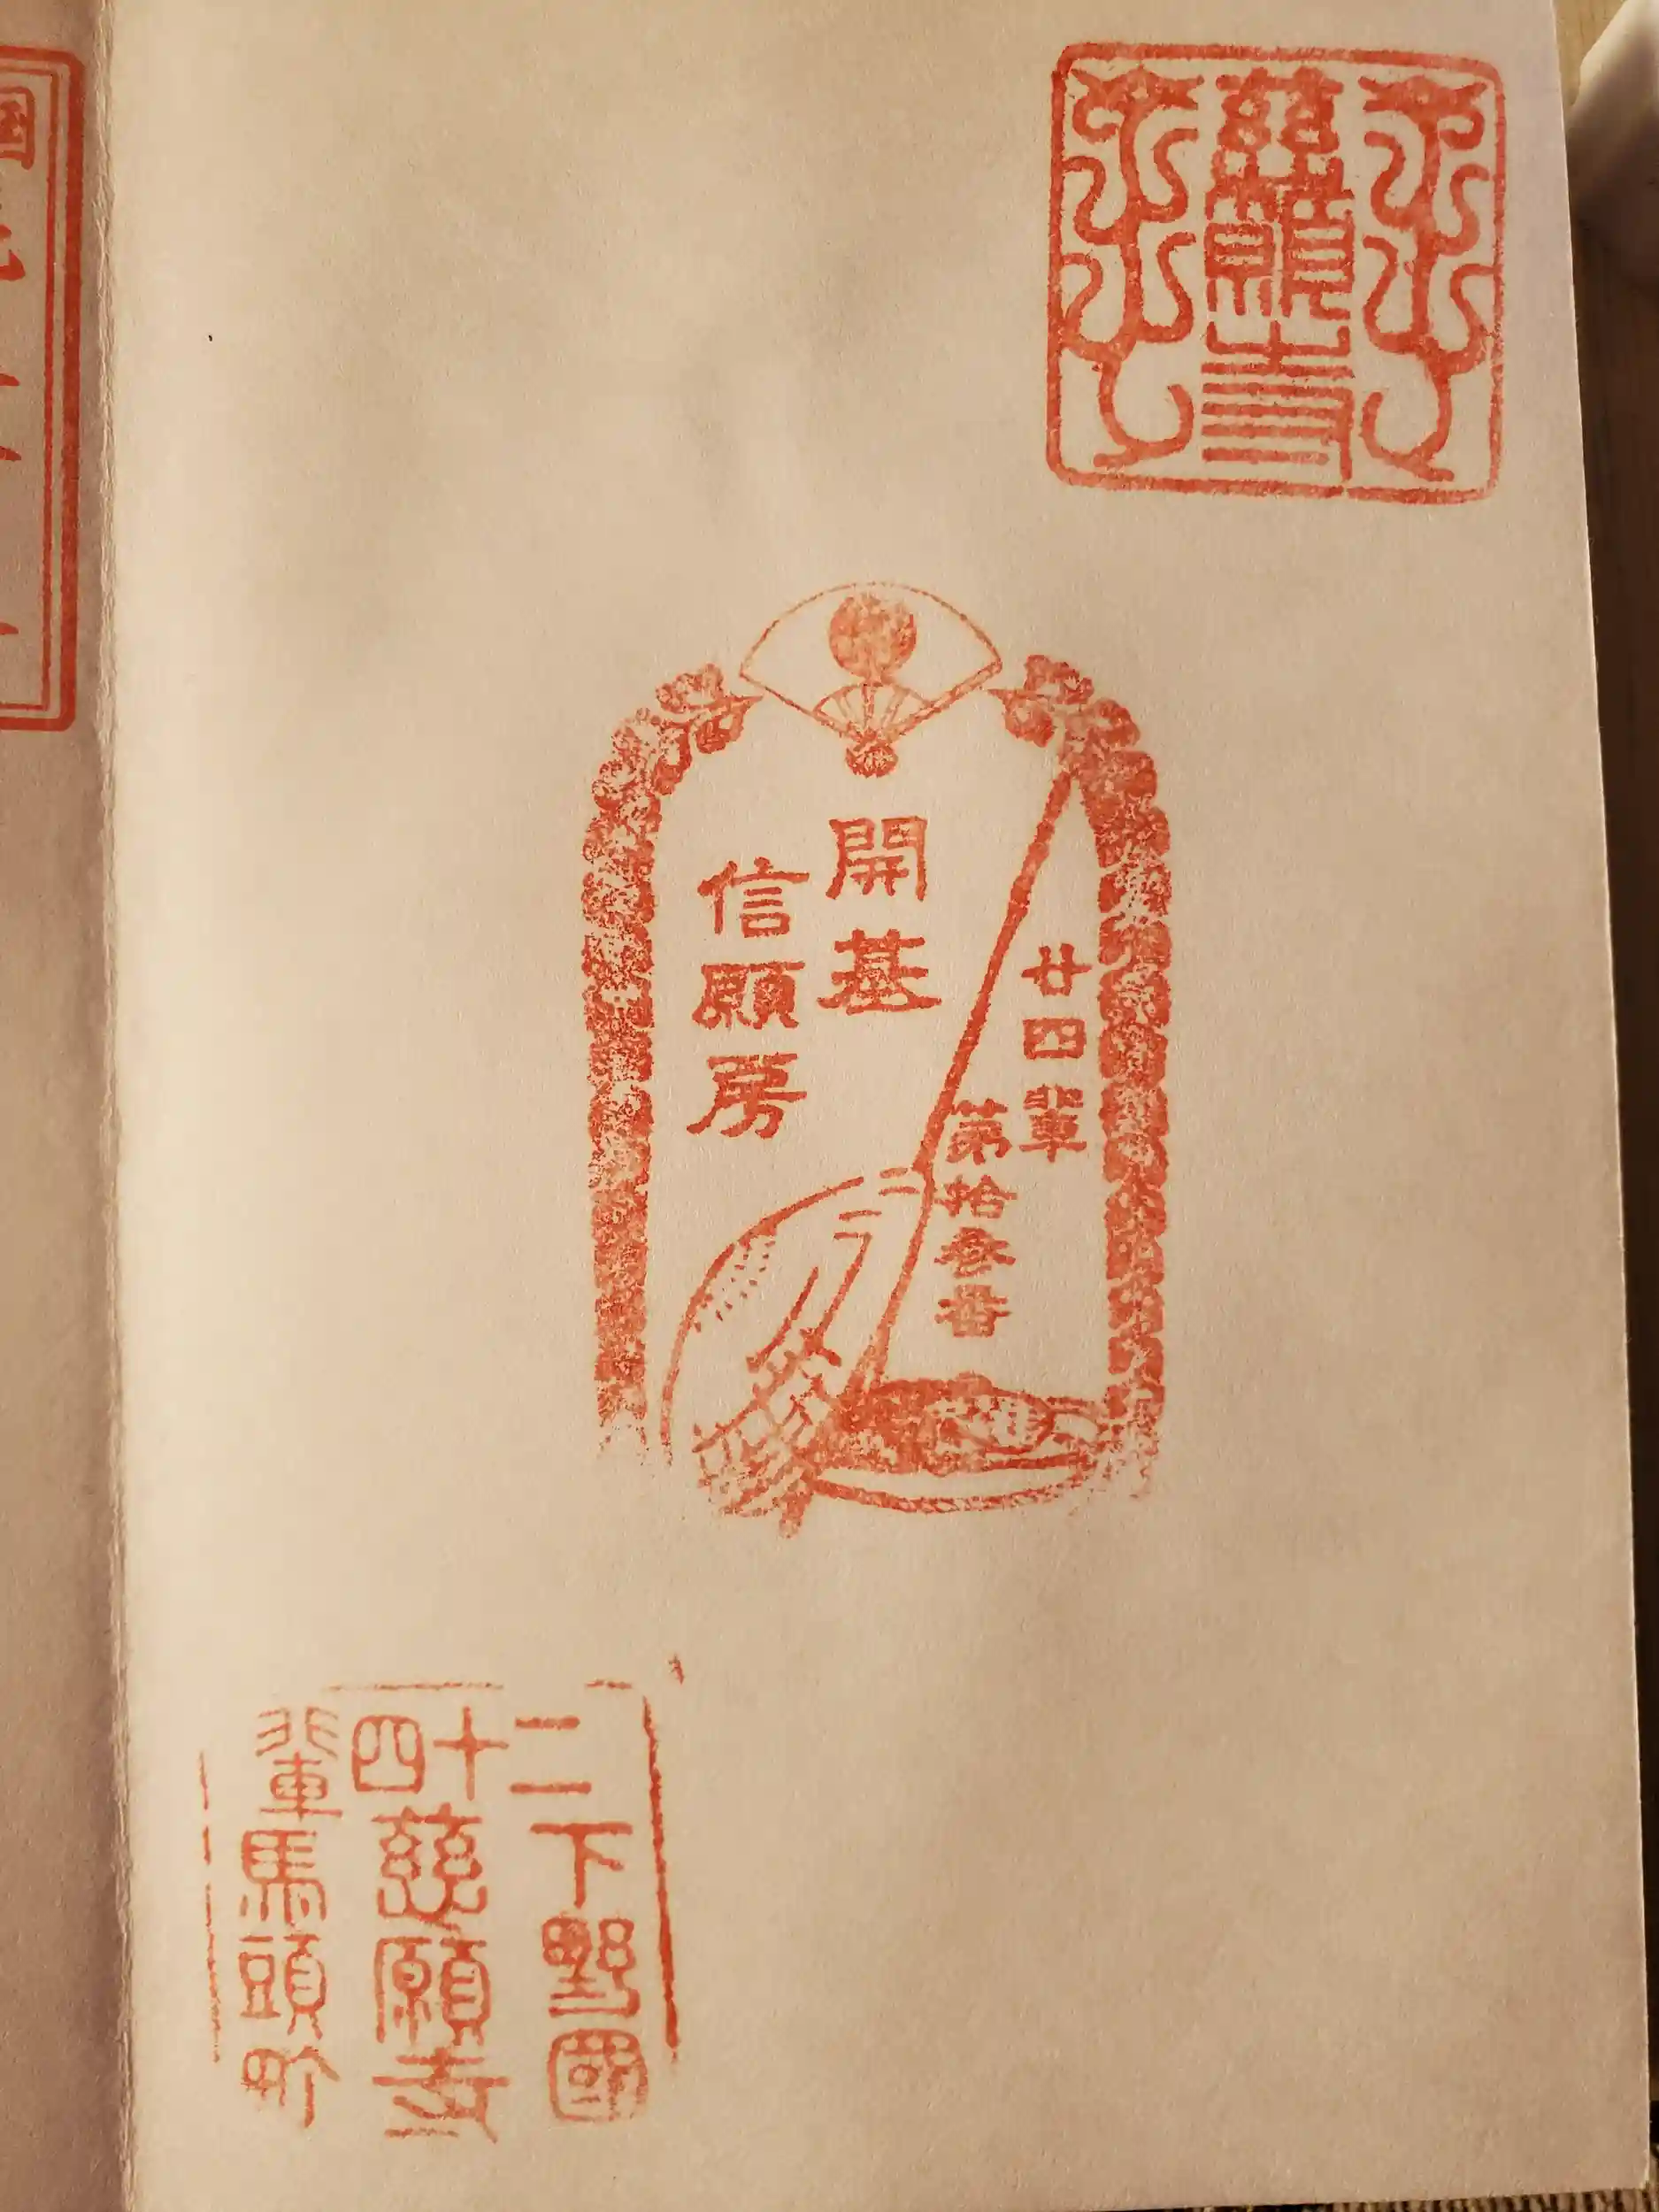 慈願寺
廿四輩
第拾参番
開基
信願房
二十四輩
下野國
慈願寺
馬頭町